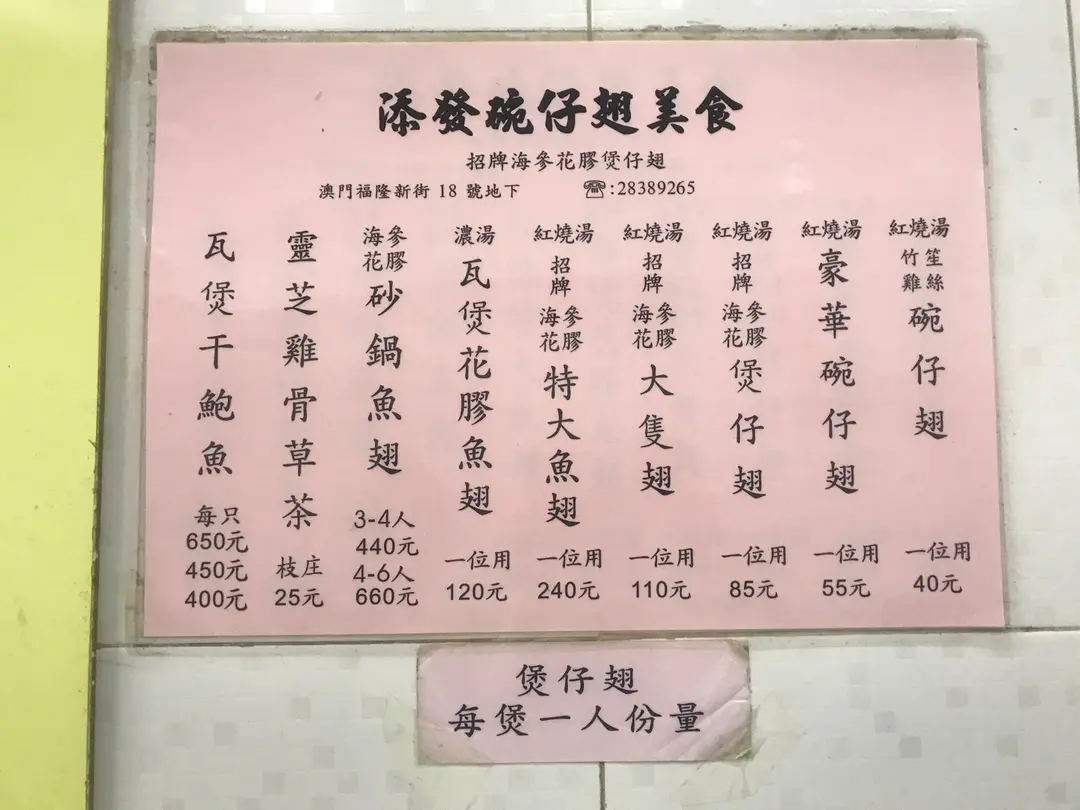 添發碗仔翅美食
招牌海參花膠煲仔翅
澳門福隆新街 18 號地下 ☎:28389265
紅燒湯 竹笙雞絲碗仔翅 一位用 40元
紅燒湯 豪華碗仔翅 一位用 55元
紅燒湯 招牌海參花膠煲仔翅 一位用 85元
紅燒湯 招牌海參花膠大隻翅 一位用 110元
紅燒湯 招牌海參花膠特大魚翅 一位用 240元
濃湯 瓦煲花膠魚翅 一位用 120元
海參花膠砂鍋魚翅 3-4人 440元 4-6人 660元
靈芝雞骨草茶 枝庄 25元
瓦煲干鮑魚 每只 650元 450元 400元
煲仔翅
每煲一人份量